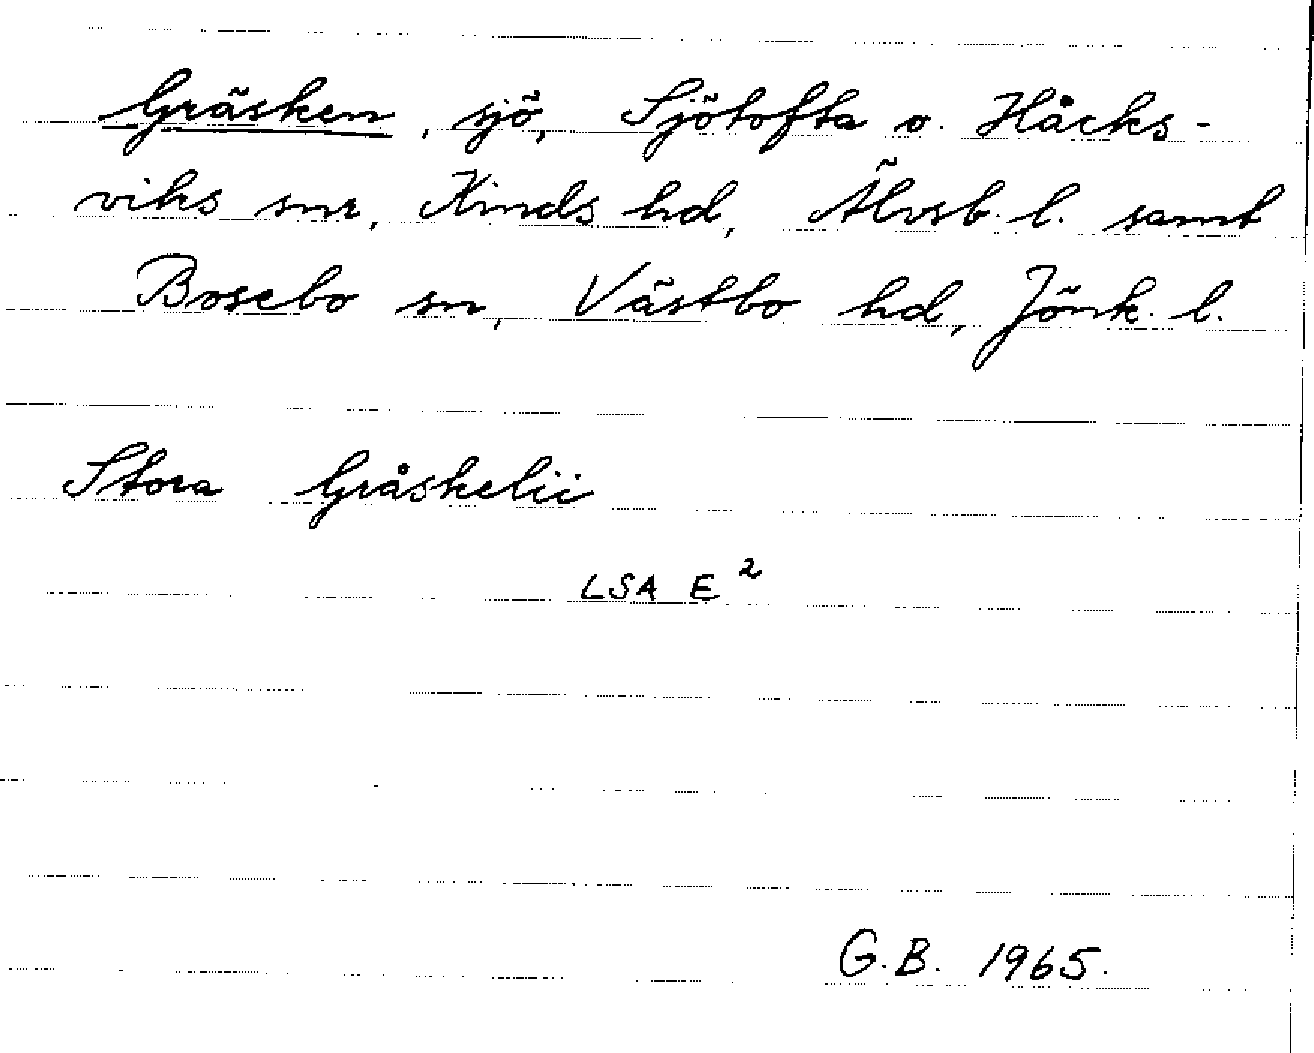 Gräsken, sjö, Sjötofta o. Håcks-
viks snr, Kinds hd, Älvsb. l. samt
Bosebo sn, Västbo hd, Jönk. l.
Stora Gråskelii
LSA E²
G.B. 1965.